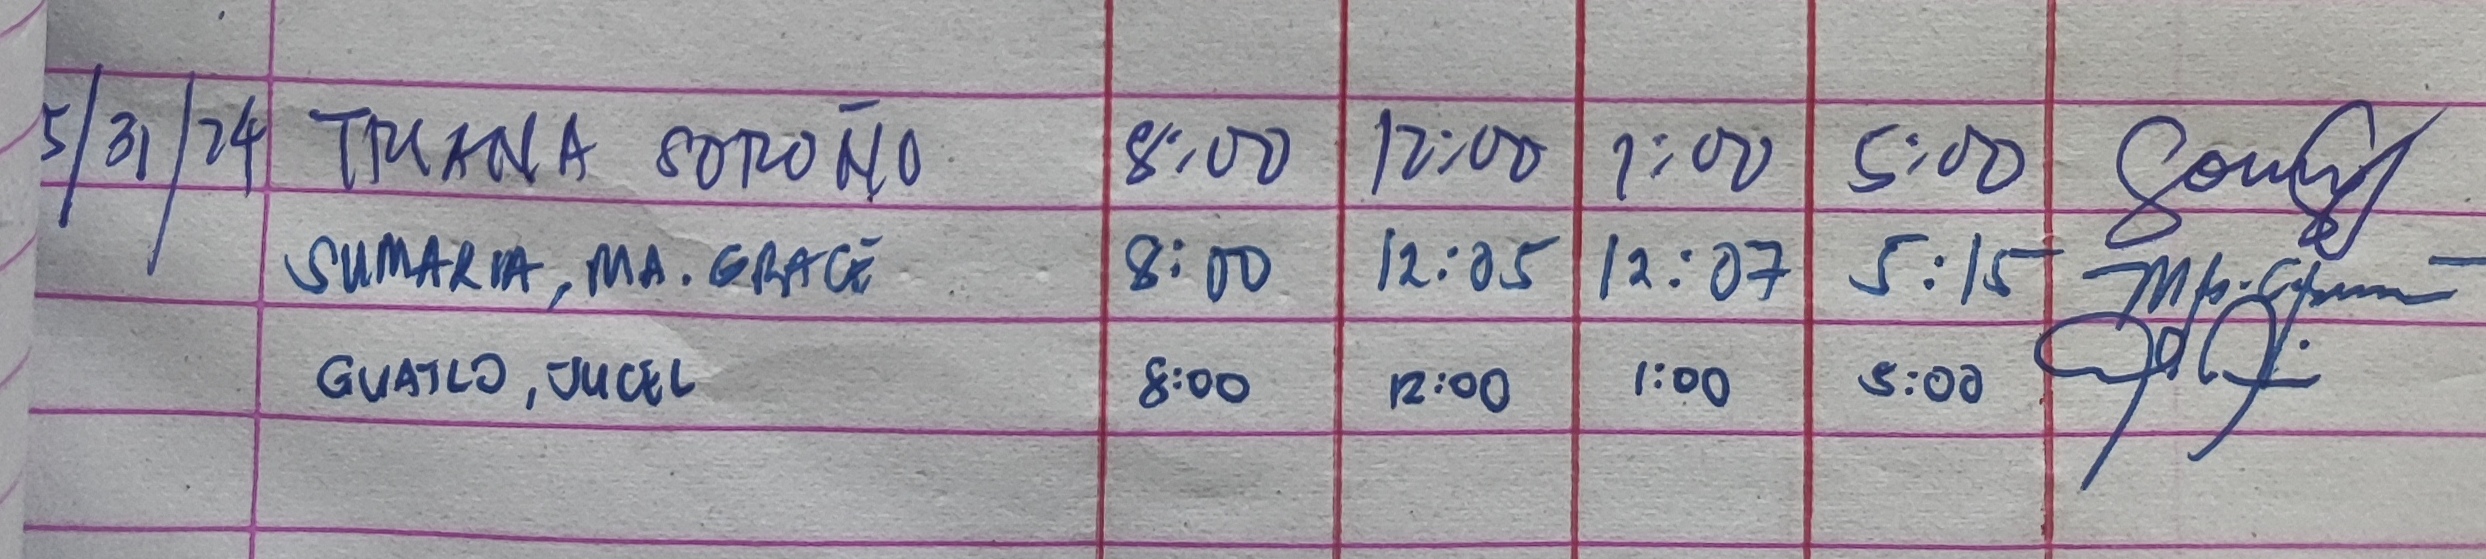 5/31/24 TRIANA SOROÑO 8:00 12:00 1:00 5:00
SUMARIA, MA. GRACE 8:00 12:05 12:07 5:15
GUATLO, JUCEL 8:00 12:00 1:00 5:00